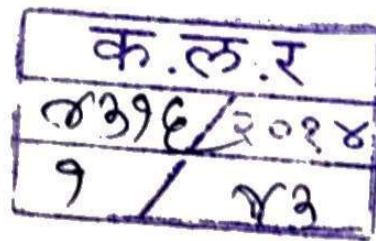 क.ल.र
४३१६/२०१४
१ / ४३